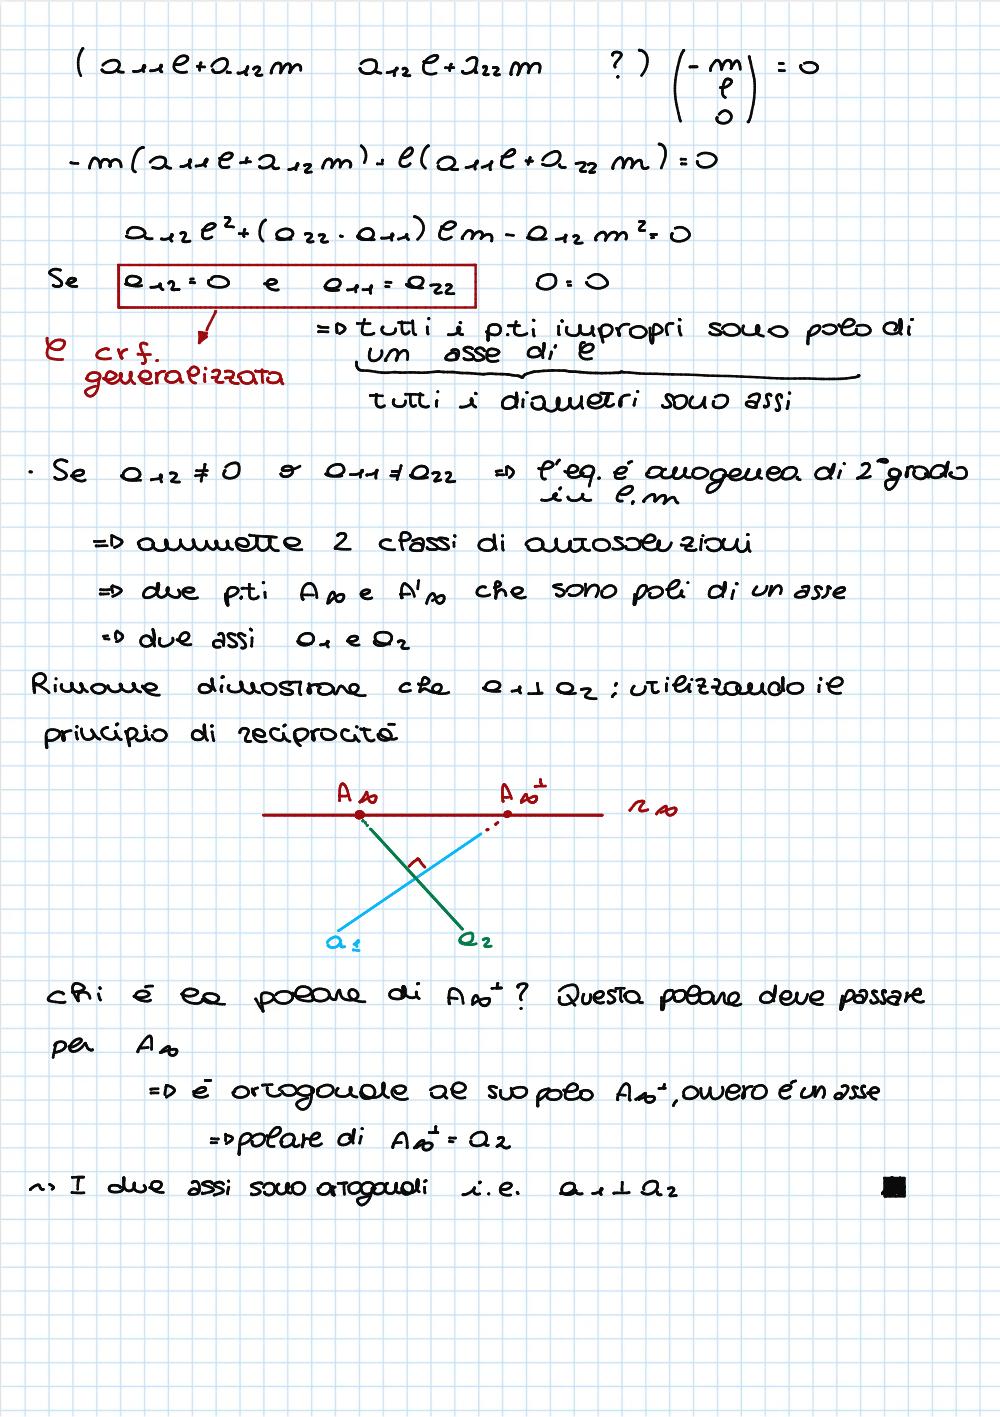 ( a₁₁ℓ+a₁₂m a₁₂ℓ+a₂₂m ? ) (-m ℓ 0) = 0
-m(a₁₁ℓ+a₁₂m)+ℓ(a₁₁ℓ+a₂₂m)=0
a₁₂ℓ²+(a₂₂-a₁₁)ℓm-a₁₂m²=0
Se a₁₂=0 e a₁₁=a₂₂ 0=0
=> tutti i p.ti impropri sono polo di
um asse di ℓ
ℓ crf.
generalizzata
tutti i diametri sono assi
· Se a₁₂≠0 o a₁₁≠a₂₂ => l'eq. é omogenea di 2°grado
in ℓ.m
=> ammette 2 classi di autosoluzioni
=> due p.ti A∞ e A'∞ che sono poli di un asse
=> due assi a₁ e a₂
Rimane dimostrare che a₁⊥a₂ : utilizzando il
principio di reciprocitá
A∞ A∞⊥ r∞
a₁ a₂
chi é la polare di A∞⊥? Questa polare deve passare
per A∞
=> é ortogonale al suo polo A∞⊥, ovvero é un asse
=> polare di A∞⊥ = a₂
~> I due assi sono ortogonali i.e. a₁⊥a₂ ■